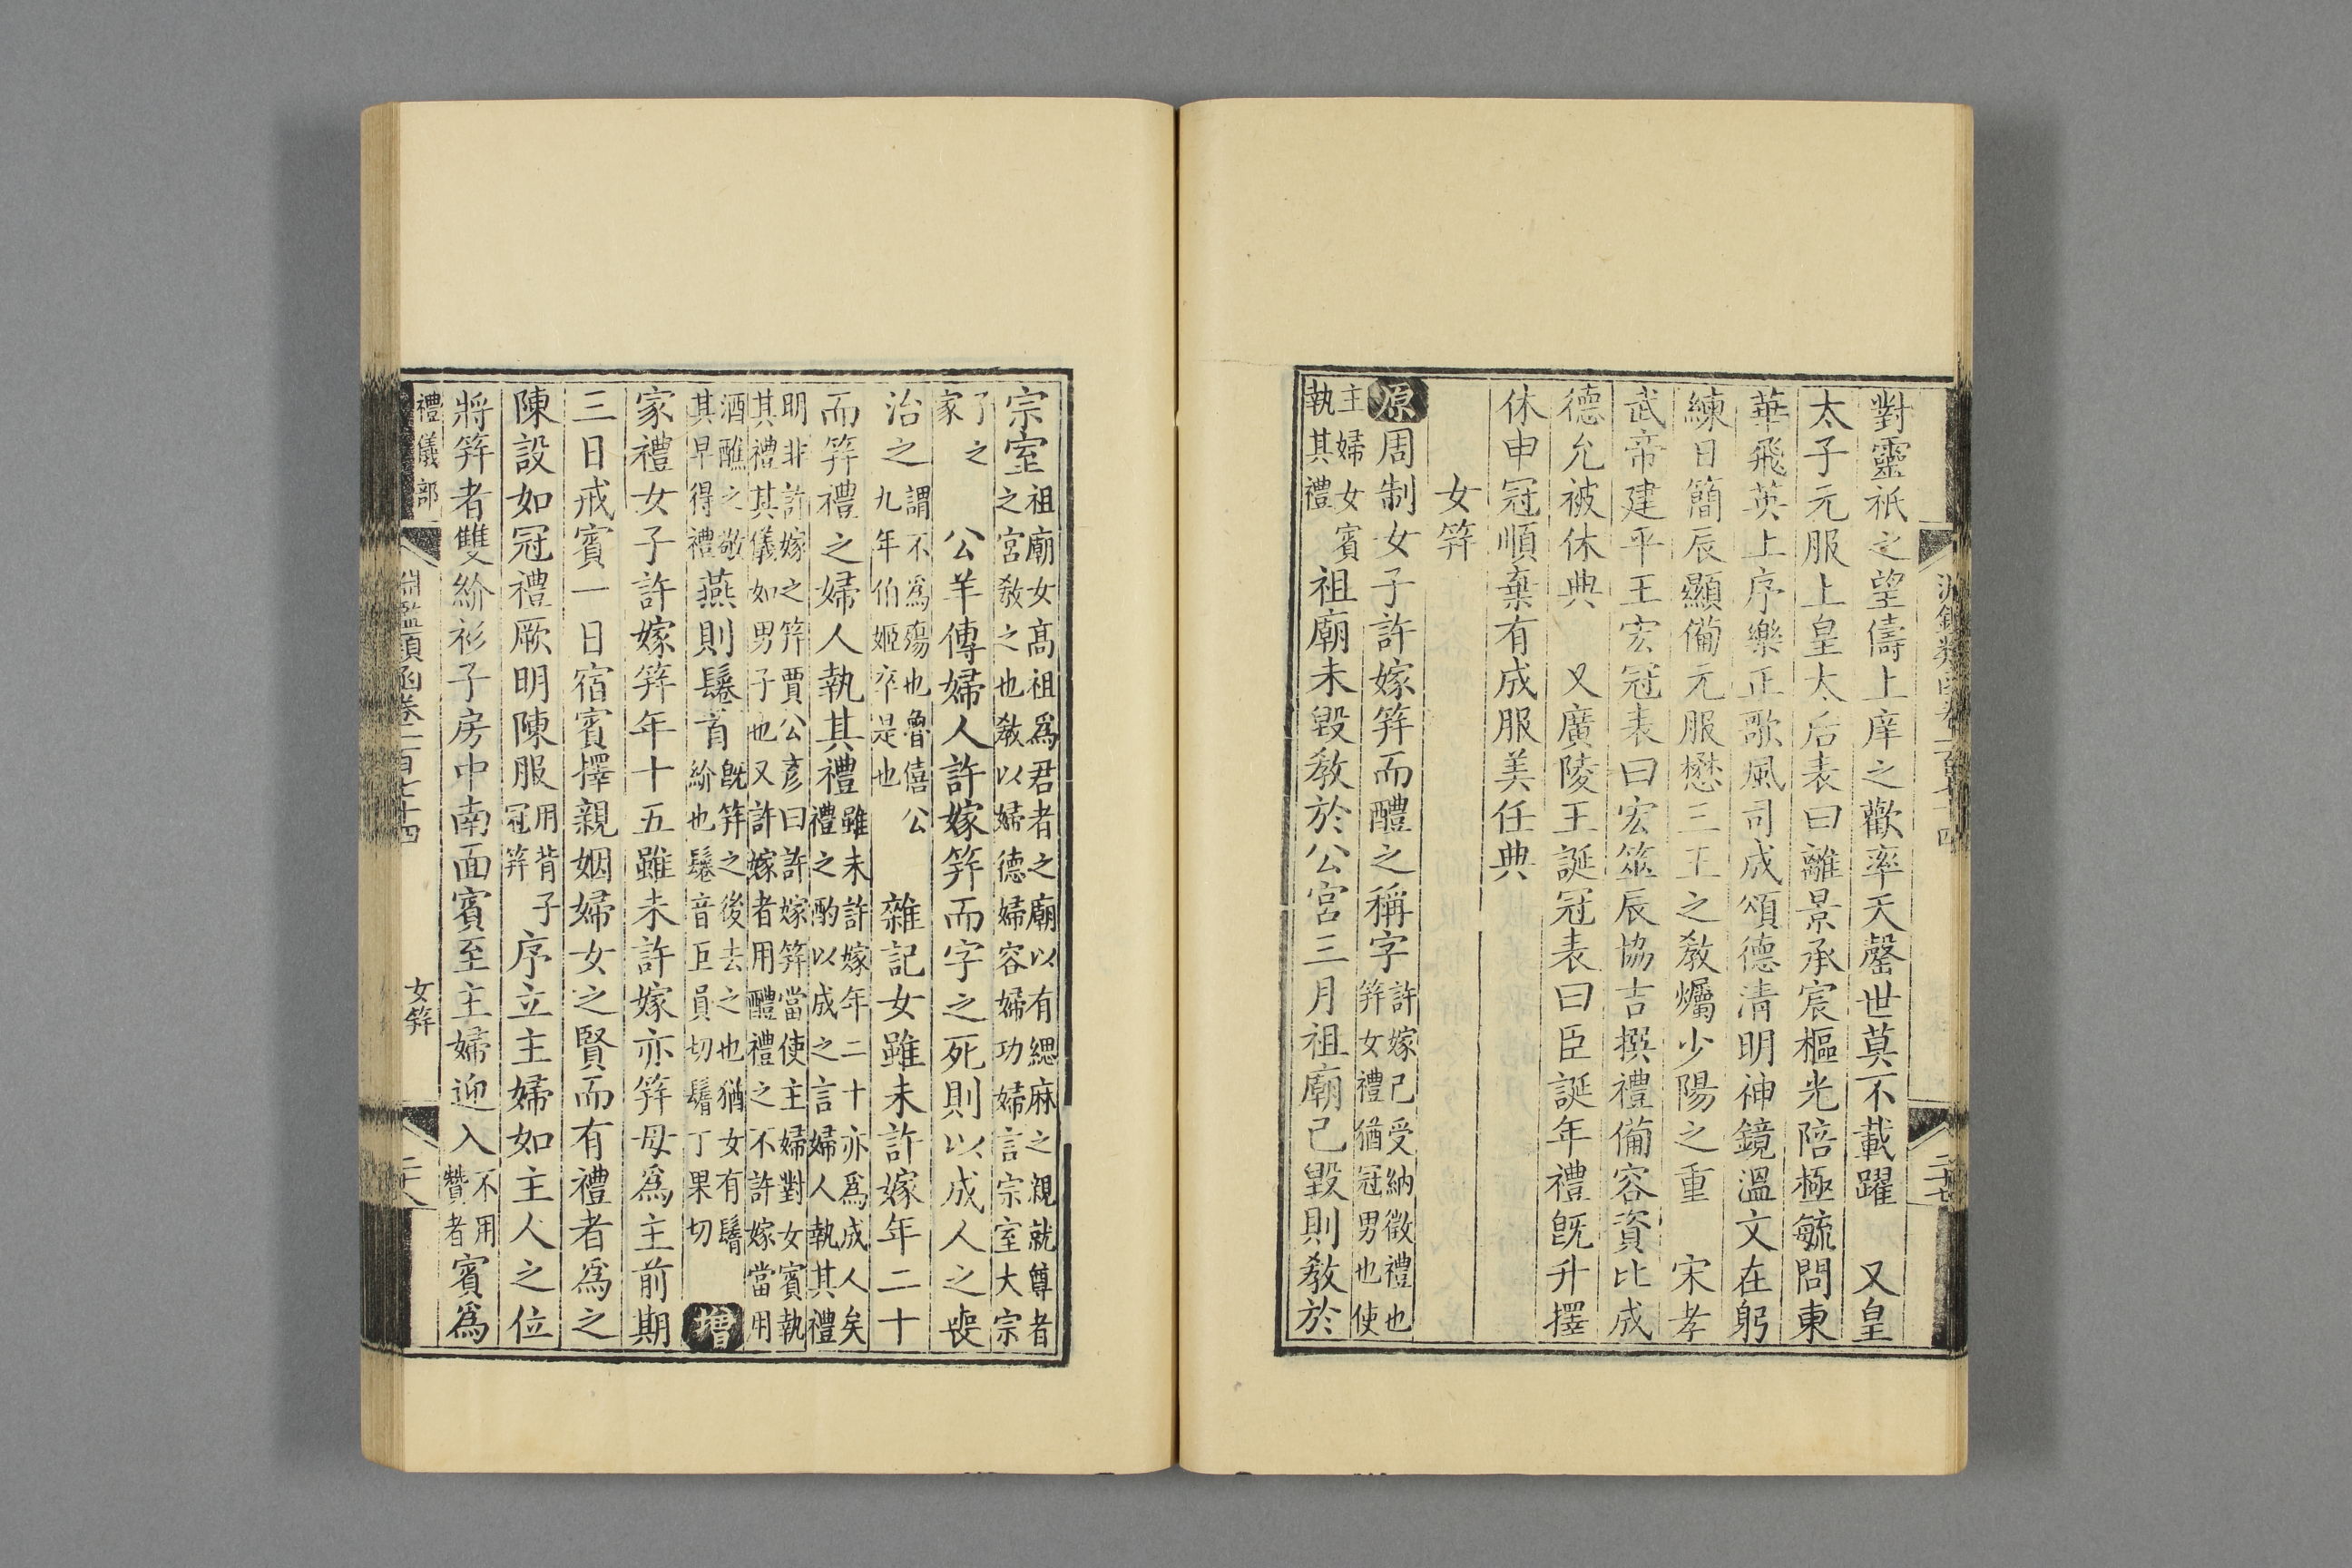 對靈祇之望儔上庠之歡率天罄世莫不載躍　又皇
太子元服上皇太后表曰離景承宸樞光陪極毓問東
華飛英上序樂正歌風司成頌德清明神鏡溫文在躬
練日簡辰顯備元服懋三王之教爥少陽之重　宋孝
武帝建平王宏冠表曰宏筮辰協吉撰禮備容資比成
德允被休典　又廣陵王誕冠表曰臣誕年禮旣升擇
休申冠順棄有成服美任典
女筓
原周制女子許嫁筓而醴之稱字許嫁已受納徵禮也筓女禮猶冠男也使
主婦女賓執其禮祖廟未毀教於公宮三月祖廟已毀則教於
二十七
宗室祖廟女高祖爲君者之廟以有緦麻之親就尊者之宮教之也教以婦德婦容婦功婦言宗室大宗
之家　公羊傳婦人許嫁筓而字之死則以成人之喪
治之謂不爲殤也魯僖公九年伯姬卒是也　雜記女雖未許嫁年二十
而筓禮之婦人執其禮雖未許嫁年二十亦爲成人矣禮之酌以成之言婦人執其禮
明非許嫁之筓賈公彥曰許嫁筓當使主婦對女賓執其禮其儀如男子也又許嫁者用醴禮之不許嫁當用
酒醮之敬其早得禮燕則鬈首旣筓之後去之也猶女有鬌紒也鬈音巨員切鬌丁果切　增
家禮女子許嫁筓年十五雖未許嫁亦筓母爲主前期
三日戒賓一日宿賓擇親姻婦女之賢而有禮者爲之
陳設如冠禮厥明陳服用背子冠筓序立主婦如主人之位
將筓者雙紒衫子房中南面賓至主婦迎入不用贊者賓爲
禮儀部
淵鑑類函卷一百七十四
女筓
二十八